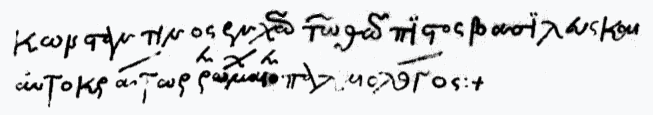 κωνσταντινος εν χω τω θω πϊστος βασϊλευς και
αυτοκρατωρ ρωμαιων ο παλαιολογος:+